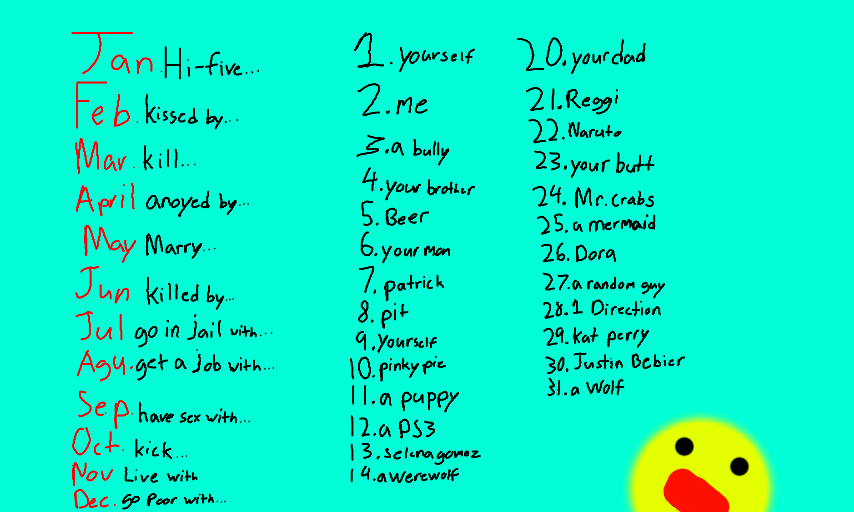 Jan Hi-five...
Feb. kissed by...
Mar. kill...
April anoyed by...
May Marry...
Jun killed by...
Jul go in jail with...
Agu. get a job with...
Sep. have sex with...
Oct. kick...
Nov Live with
Dec. go Poor with...
1. yourself
2. me
3. a bully
4. your brother
5. Beer
6. your mom
7. patrick
8. pit
9. Yourself
10. pinky pie
11. a puppy
12. a PS3
13. selena gomez
14. a werewolf
20. your dad
21. Reggi
22. Naruto
23. your butt
24. Mr. crabs
25. a mermaid
26. Dora
27. a random guy
28. 1 Direction
29. kat perry
30. Justin Bebier
31. a Wolf